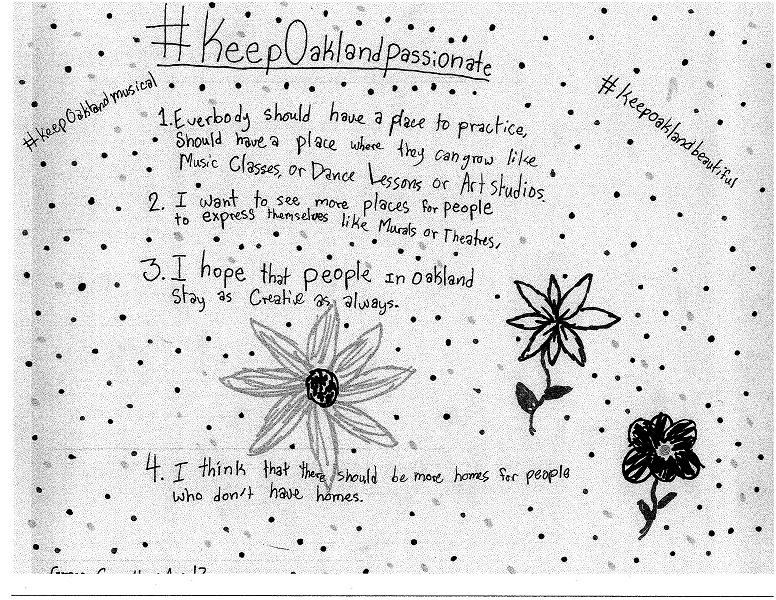 #KeepOaklandpassionate
#KeepOaklandmusical
#Keepoaklandbeautiful
1. Everbody should have a place to practice,
Should have a place where they can grow like
Music Classes, or Dance Lessons or Art studios.
2. I want to see more places for people
to express themselves like Murals or Theatres,
3. I hope that people in oakland
Stay as Creative as always.
4. I think that there should be more homes for people
who don't have homes.